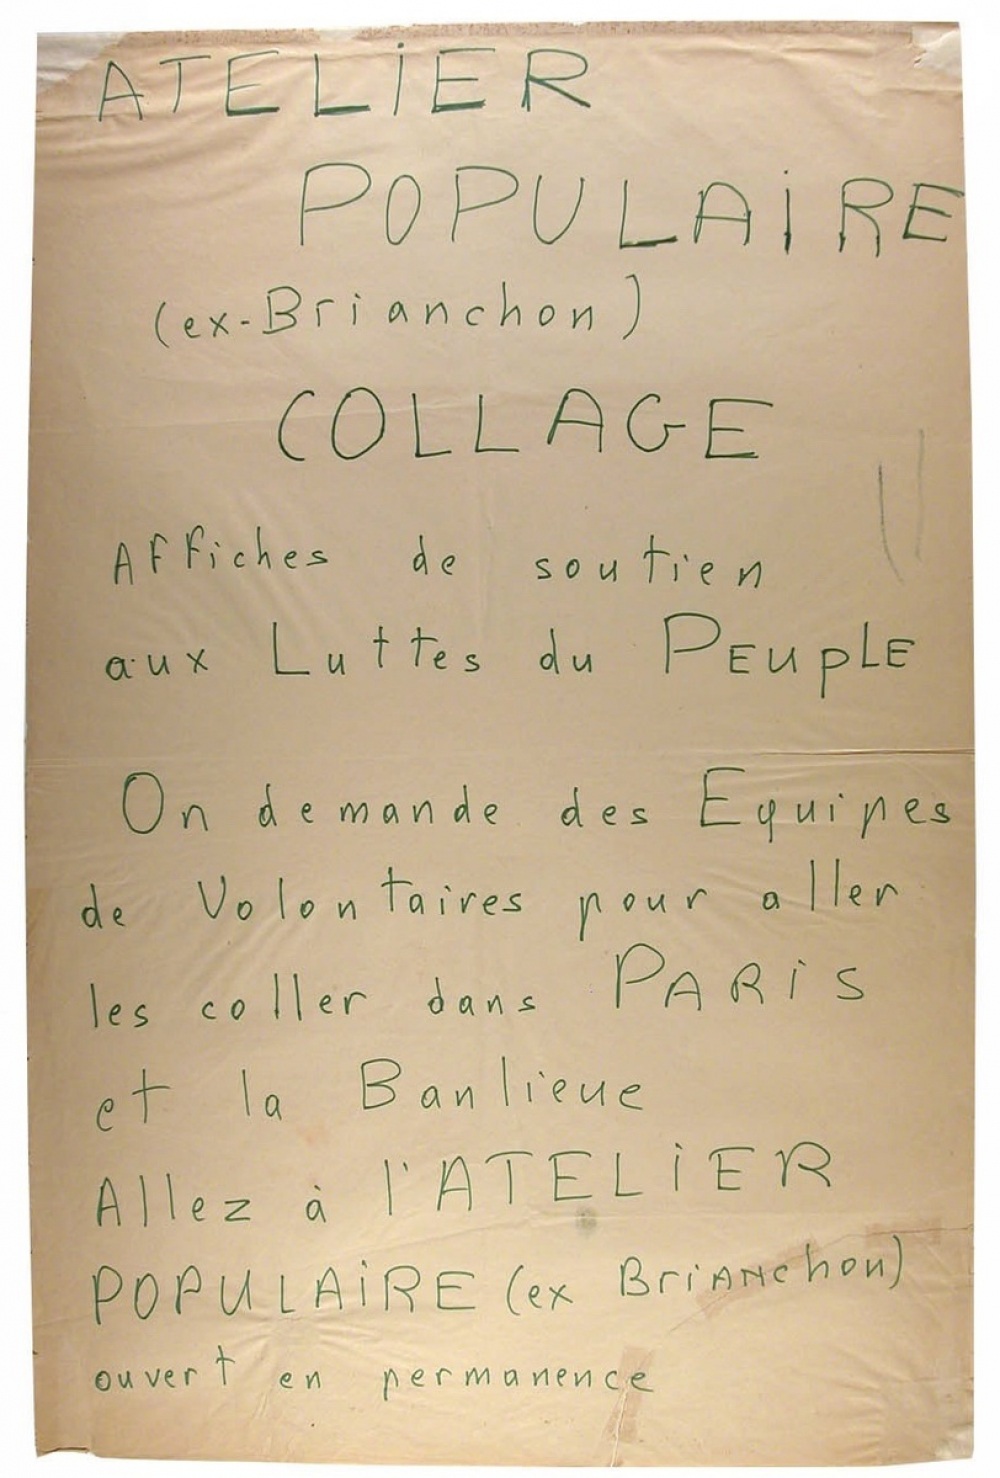 ATELiER
POPULAiRE
(ex-Brianchon)
COLLAGE
AFFiches de soutien
aux Luttes du PEupLE
On demande des Equipes
de Volontaires pour aller
les coller dans PARiS
et la Banlieue
Allez à l'ATELiER
POPULAiRE (ex BriANchon)
ouvert en permanence